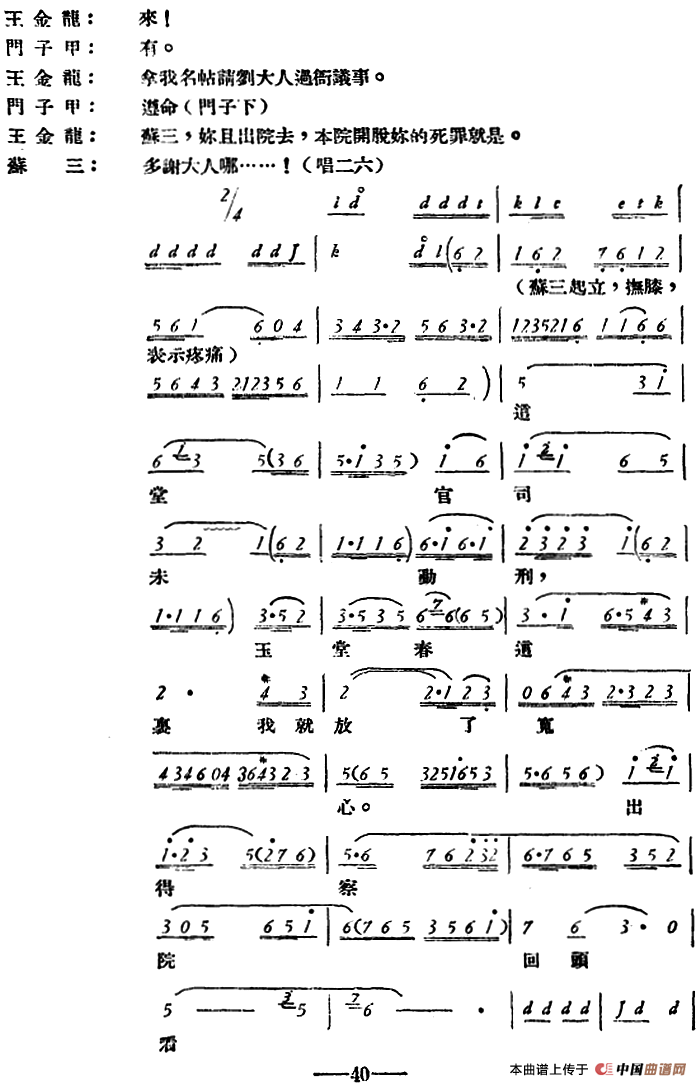 王金龍： 來！
門子甲： 有。
王金龍： 拿我名帖請劉大人過衙議事。
門子甲： 遵命（門子下）
王金龍： 蘇三，妳且出院去，本院開脫妳的死罪就是。
蘇 三： 多謝大人哪……！（唱二六）
2/4 d d d d t | k l c e t k |
d d d d d d J | k d l (6 2 | 1 6 2 7 6 1 2 |
（蘇三起立，撫膝，
5 6 1 6 0 4 | 3 4 3·2 5 6 3·2 | 1235216 1 1 6 6 |
表示疼痛）
5 6 4 3 212356 | 1 1 6 2 ) | 5 3 i |
這
6 3 5(3 6 | 5·i 3 5 ) i 6 | i i 6 5 |
堂 官 司
3 2 1(6 2 | 1·1 1 6 ) 6·i 6·i | 2 3 2 3 i(6 2 |
未 動 刑，
1·1 1 6 ) 3·5 2 | 3·5 3 5 6 7 6(6 5) | 3 · i 6·5 4 3 |
玉 堂 春 這
2 · 4 3 | 2 2·1 2 3 | 0 6 4 3 2·3 2 3 |
裏 我 就 放 了 寬
434604 3643 2·3 | 5(6 5 3251653 | 5·6 5 6 ) i 2 i |
心。 出
i·2 3 5(2 7 6) | 5·6 7 6 2 32 | 6·7 6 5 3 5 2 |
得 察
3 0 5 6 5 i | 6(7 6 5 3 5 6 i ) | 7 6 3· 0 |
院 回 頭
5 — — 3 5 | 7 6 — — · | d d d d | J d d |
看
—— 40 ——
本曲谱上传于 中国曲谱网